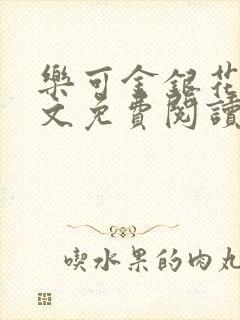 樂可金銀花
文免費閱讀
喫水果的肉丸